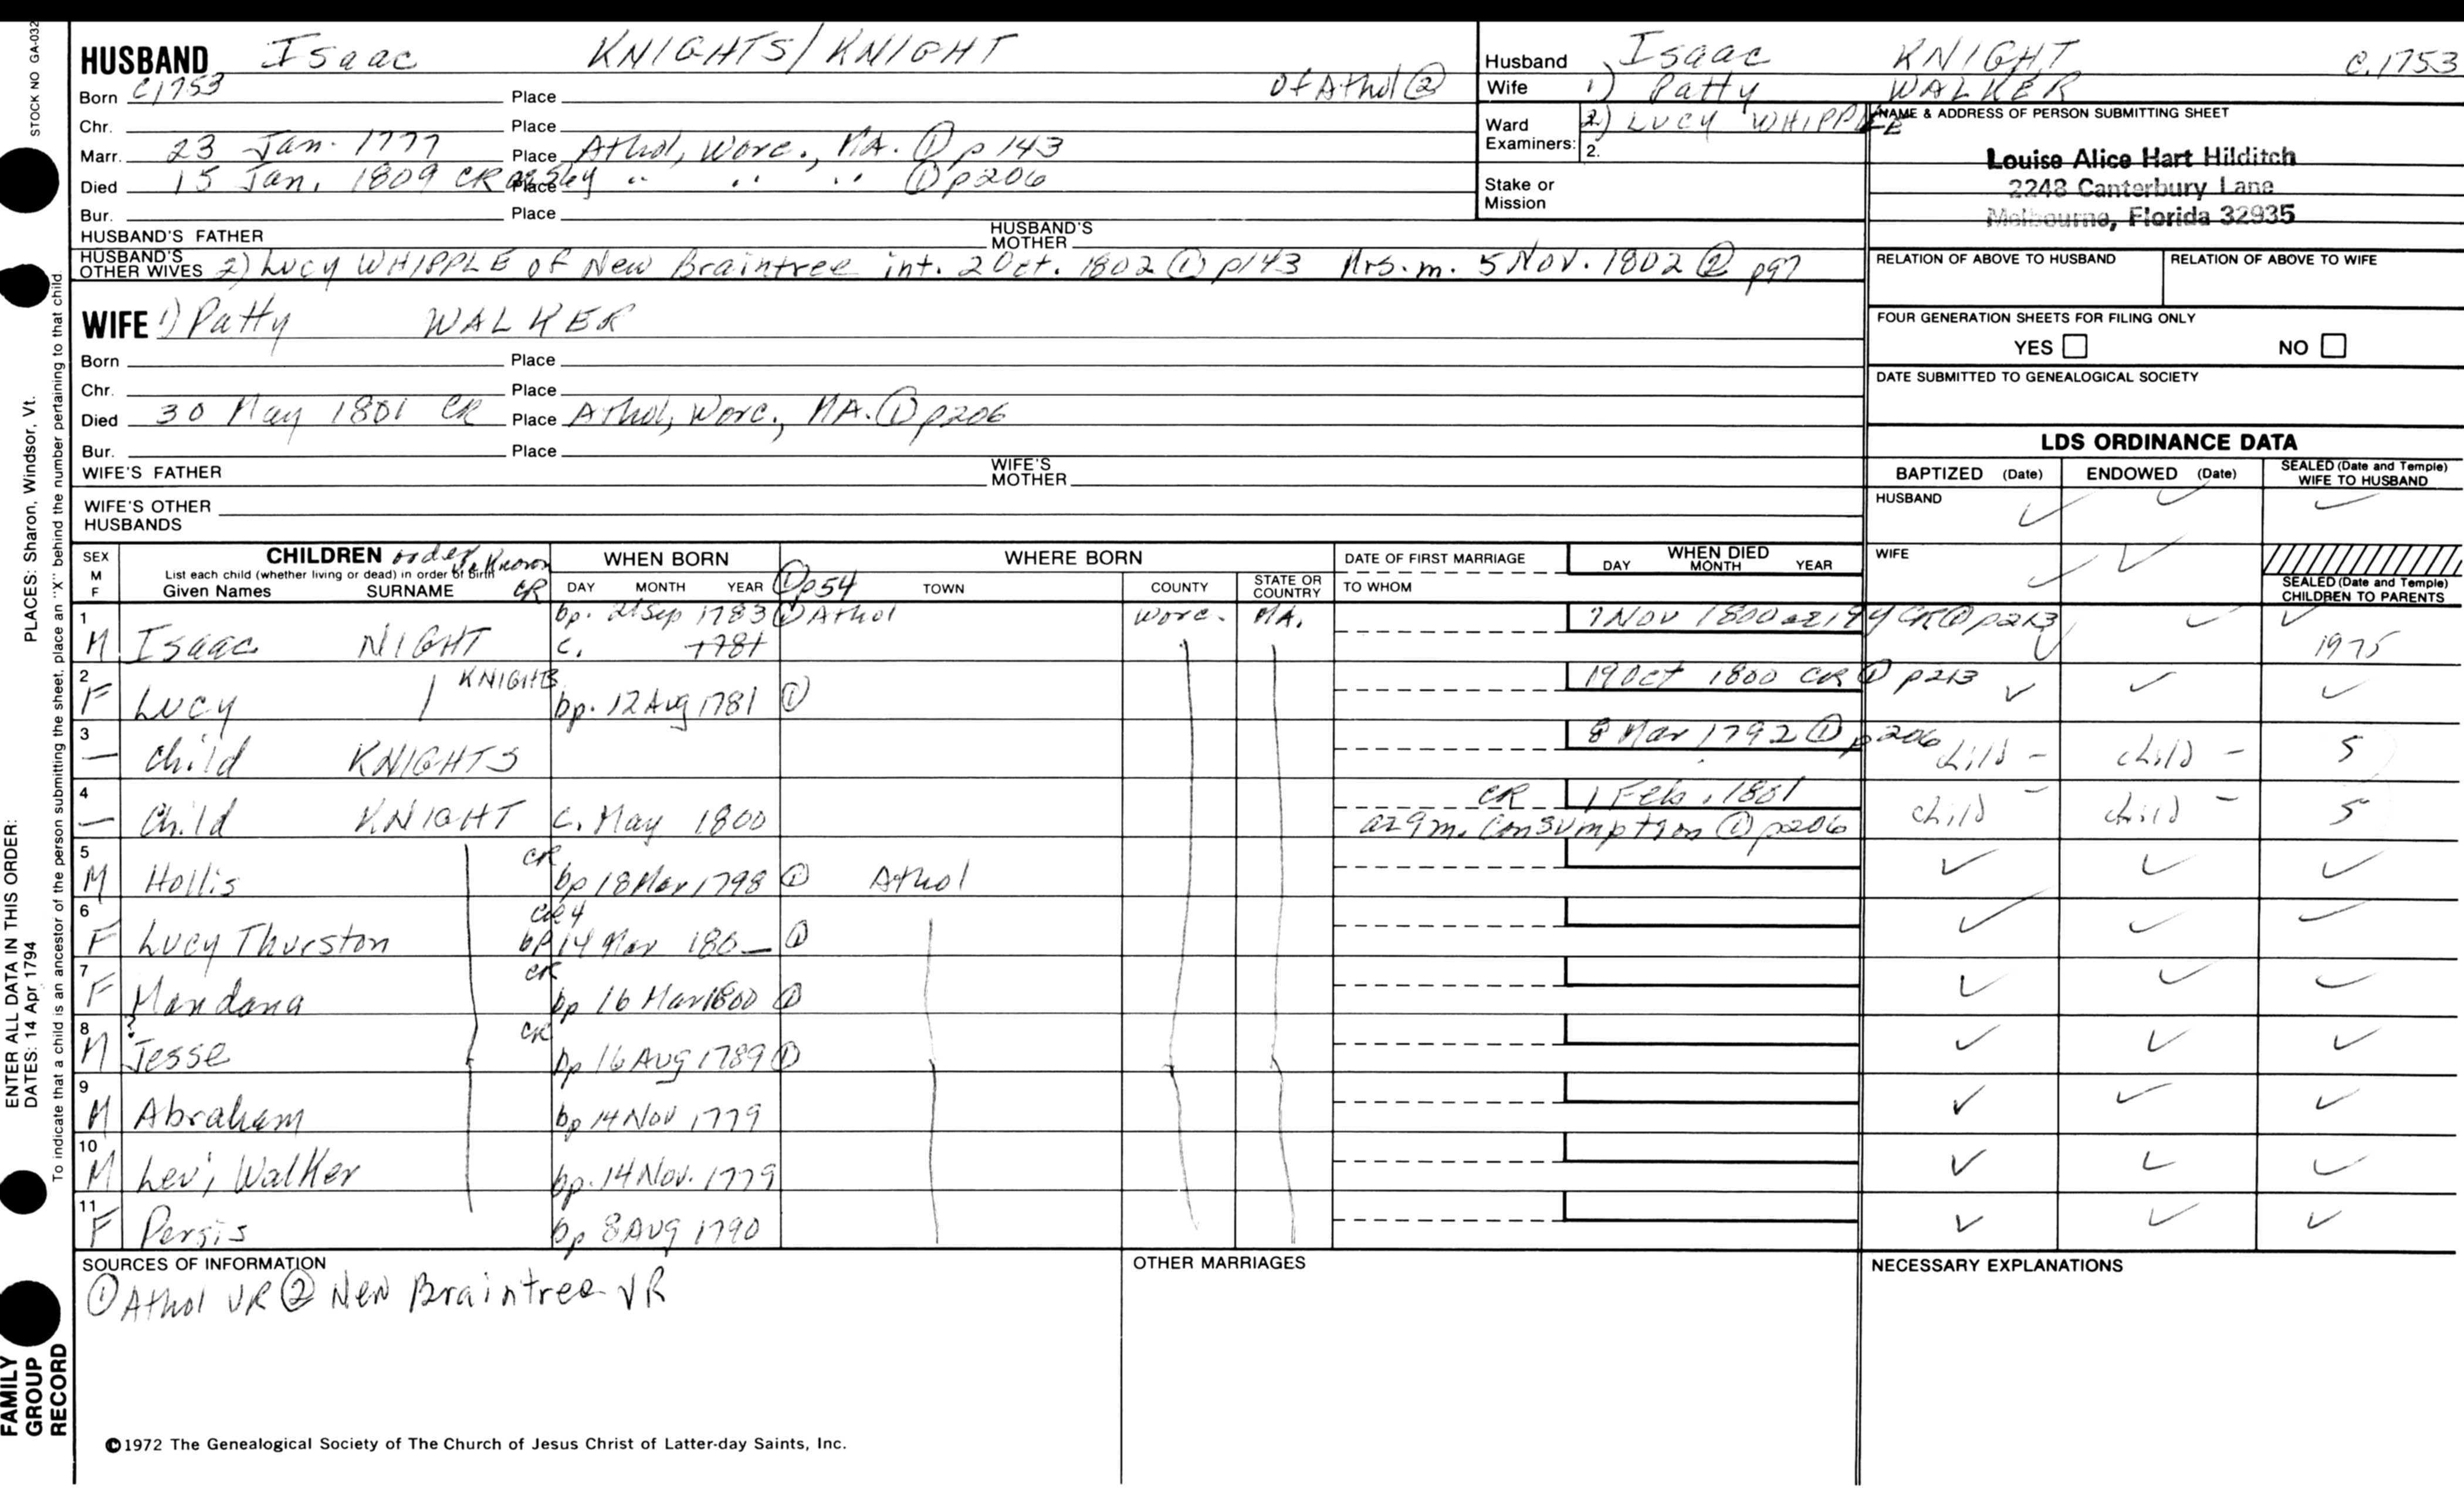 STOCK NO GA-032
HUSBAND Isaac KNIGHTS/KNIGHT
Born c1753 Place of Athol ②
Chr. Place
Marr. 23 Jan. 1777 Place Athol, Worc., MA. ① p 143
Died 15 Jan. 1809 CR Place " " " ① p206
Bur. Place
HUSBAND'S FATHER HUSBAND'S MOTHER
HUSBAND'S OTHER WIVES 2) Lucy WHIPPLE of New Braintree int. 2 Oct. 1802 ① p143 Mrs. m. 5 Nov. 1802 ② p97
WIFE 1) Patty WALKER
Born Place
Chr. Place
Died 30 May 1801 CR Place Athol, Worc., MA. ① p206
Bur. Place
WIFE'S FATHER WIFE'S MOTHER
WIFE'S OTHER HUSBANDS
Husband Isaac KNIGHT C.1753
Wife 1) Patty WALKER
2) LUCY WHIPPLE
Ward Examiners: 2.
Stake or Mission
NAME & ADDRESS OF PERSON SUBMITTING SHEET
Louise Alice Hart Hilditch
2248 Canterbury Lane
Melbourne, Florida 32935
RELATION OF ABOVE TO HUSBAND RELATION OF ABOVE TO WIFE
FOUR GENERATION SHEETS FOR FILING ONLY
YES NO
DATE SUBMITTED TO GENEALOGICAL SOCIETY
LDS ORDINANCE DATA
BAPTIZED (Date) ENDOWED (Date) SEALED (Date and Temple) WIFE TO HUSBAND
HUSBAND ✓ ✓ ✓
WIFE ✓ ✓
SEALED (Date and Temple) CHILDREN TO PARENTS
SEX M F CHILDREN order unknown CR
List each child (whether living or dead) in order of birth
Given Names SURNAME
WHEN BORN DAY MONTH YEAR ① p54
WHERE BORN TOWN COUNTY STATE OR COUNTRY
DATE OF FIRST MARRIAGE TO WHOM
WHEN DIED DAY MONTH YEAR
1 M Isaac NIGHT bp. 21 Sep 1783 ① Athol Worc. MA. 7 Nov 1800 ae 19y CR ① p213 ✓ ✓ ✓
c. 1781 1975
2 F Lucy KNIGHTS bp. 12 Aug 1781 ① 19 Oct 1800 CR ① p213 ✓ ✓ ✓
3 — Child KNIGHTS 8 Mar 1792 ① p206 child - child - 5
4 — Child KNIGHT c. May 1800 CR 1 Feb. 1801 child - child - 5
ae 9m. Consumption ① p206
5 M Hollis CR bp 18 Mar 1798 ① Athol ✓ ✓ ✓
6 F Lucy Thurston bp 14 Mar 180_ ① ✓ ✓ ✓
7 F Mandana CR bp 16 Mar 1800 ① ✓ ✓ ✓
8 M? Jesse CR bp 16 Aug 1789 ① ✓ ✓ ✓
9 M Abraham bp 14 Nov 1779 ✓ ✓ ✓
10 M Levi Walker bp. 14 Nov. 1779 ✓ ✓ ✓
11 F Persis bp 8 Aug 1790 ✓ ✓ ✓
SOURCES OF INFORMATION
① Athol VR ② New Braintree VR
OTHER MARRIAGES
NECESSARY EXPLANATIONS
©1972 The Genealogical Society of The Church of Jesus Christ of Latter-day Saints, Inc.
FAMILY GROUP RECORD
ENTER ALL DATA IN THIS ORDER:
DATES: 14 Apr 1794
PLACES: Sharon, Windsor, Vt.
To indicate that a child is an ancestor of the person submitting the sheet, place an "X" behind the number pertaining to that child.